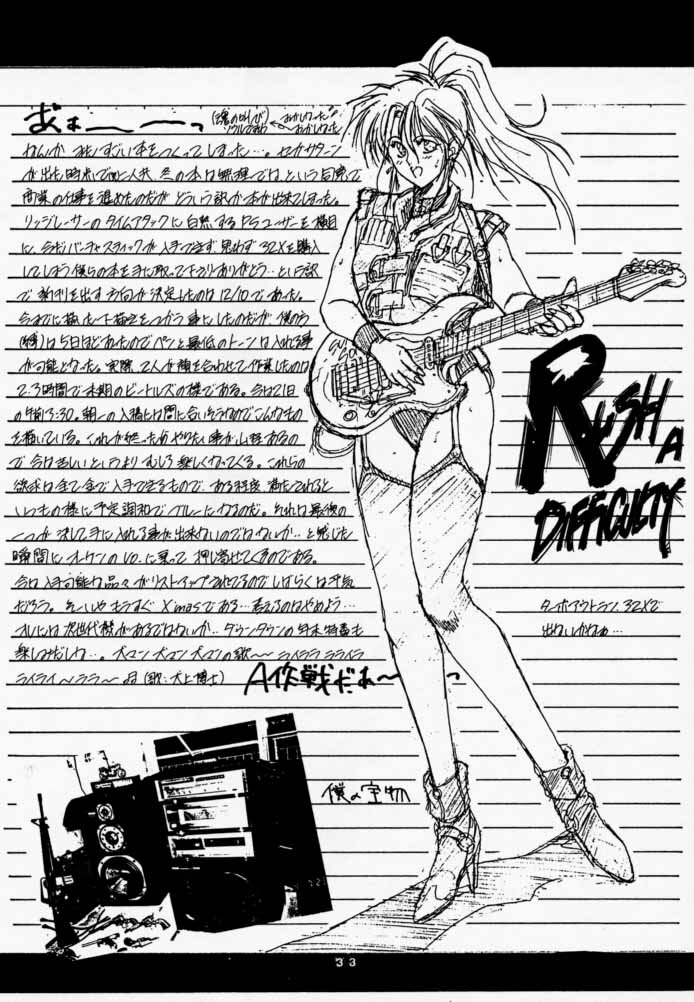 おぉーーっ
(魂の叫び)
なんかスバラしい本をつくってしまった…。セガサターン
が出た時点で
冬の本は無理では、という目算で
商業の仕事を進めたのだがどういう訳か本が出来てしまった。
リッジレーサーのタイムアタックに白熱するPSユーザーを横目
に、今だバーチャスティックが入手できず思わず32Xを購入
してしまう僕らの本を手に取って下さりありがとう…という訳
で新刊を出す方向が決定したのは12/10であった。
今までに描いた下描きをつかう事にしたのだが僕の方
は5日ほどあったのでペンと最低のトーンは入れる事
が可能となった。実際、2人が顔を合わせて作業したのは
2.3時間で末期のビートルズの様である。今は21日
の午前3:30。朝一の入稿には間に合いそうなのでこんなもの
を描いている。これが終ったらやりたい事が山程あるの
で今は苦しいというよりむしろ楽しくなってくる。これらの
欲求は全て金で入手できるもので、ある程度満たされると
いつもの様に予定調和でブルーになるのだ。それは最後の
一つが決して手に入れる事が出来ないのではないか…と感じた
瞬間にオーケンのVo.に乗って押し寄せてくるのである。
今は入手可能な品々がリストアップされてるのでしばらくは平気
だろう。そーいやもうすぐXmasである…考えるのはやめよう…
オレには次世代機があるではないか…ダウンタウンの年末特番も
楽しみだしね…。犬マン犬マン犬マンの歌〜ライララライララ
ライライ〜ララ〜
(歌:犬上博士)
A作戦だぁ〜っ
RUSH A
DIFFICULTY
ターボアウトラン、32Xで
出ないかねぇ…
僕の宝物
33